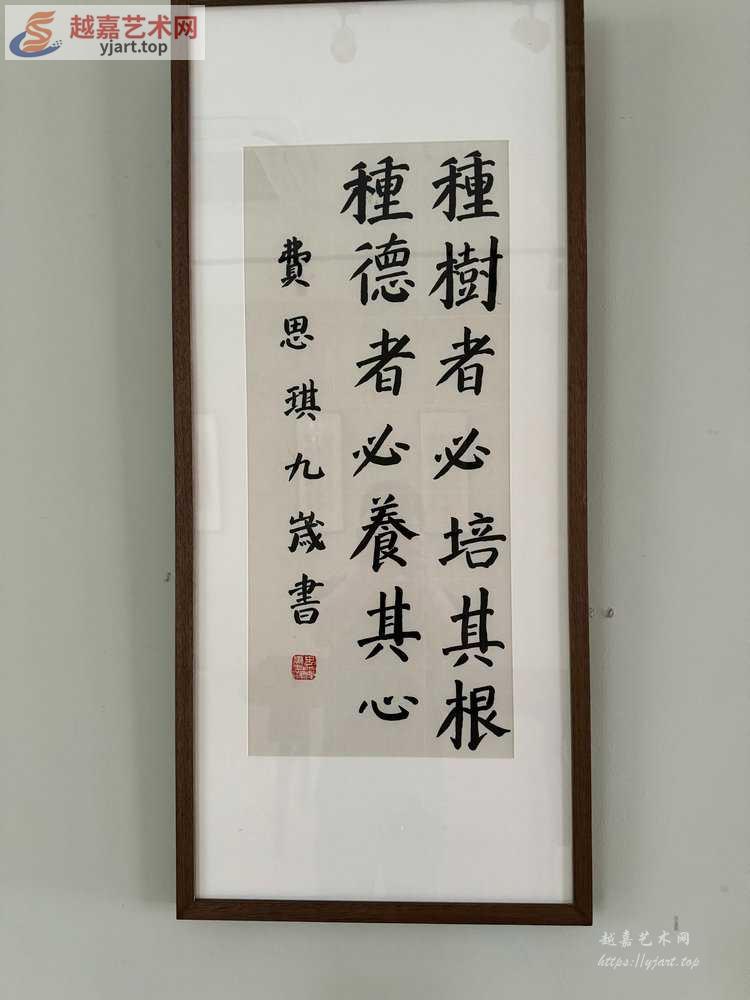 越嘉艺术网
yjart.top
種樹者必培其根
種德者必養其心
費思琪九歲書
越嘉艺术网
https://yjart.top